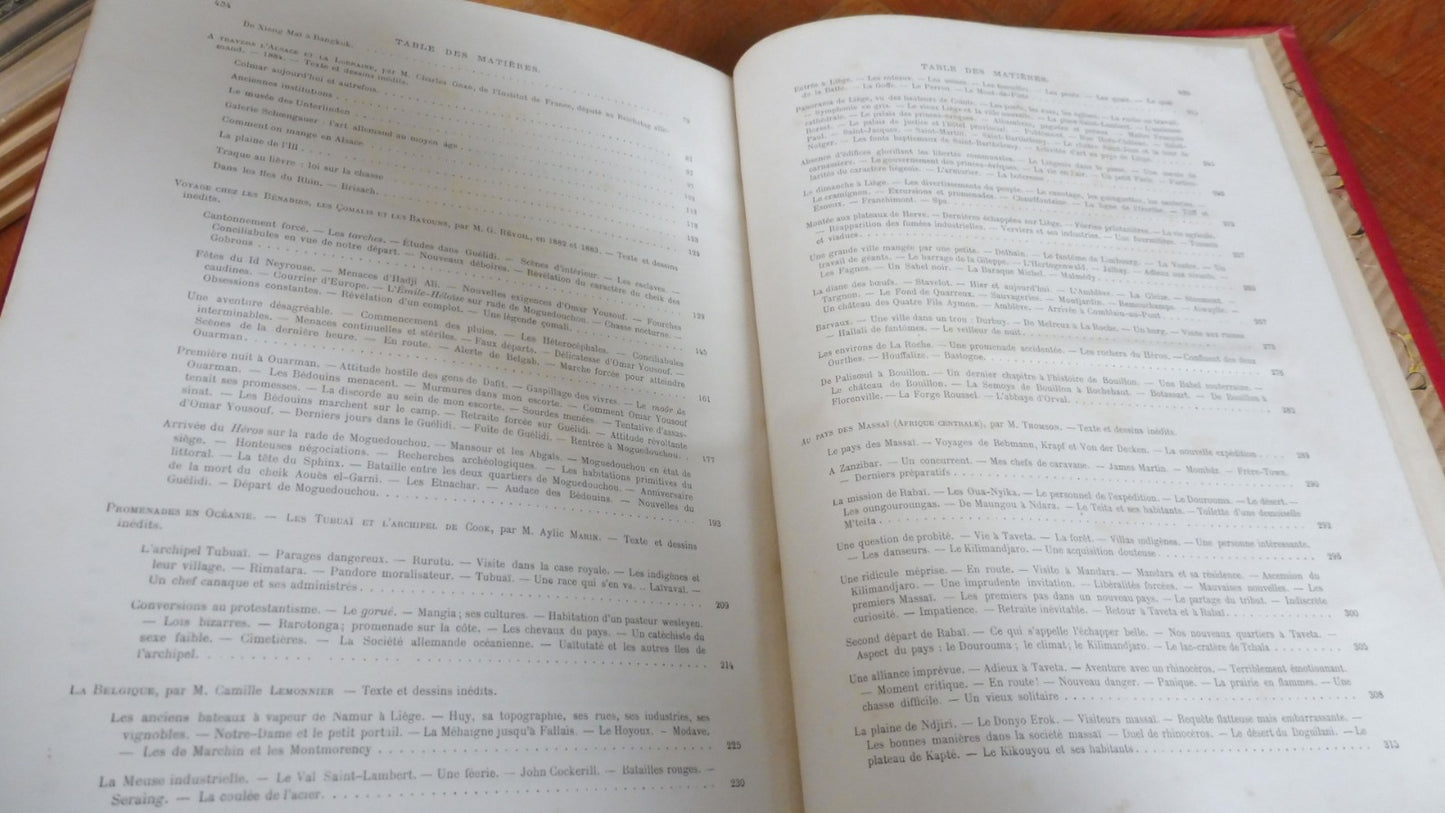 424
TABLE DES MATIÈRES.
De Xieng Maï à Bangkok.
A TRAVERS L'ALSACE ET LA LORRAINE, par M. Charles GRAD, de l'Institut de France, député au Reichstag alle-
mand. — 1884. — Texte et dessins inédits.
Colmar aujourd'hui et autrefois. 79
Anciennes institutions 81
Le musée des Unterlinden
Galerie Schœngauer : l'art allemand au moyen âge
Comment on mange en Alsace
La plaine de l'Ill
Traque au lièvre : loi sur la chasse
Dans les îles du Rhin. — Brisach.
VOYAGE CHEZ LES BÉNADIRS, LES ÇOMALIS ET LES BAYOUNS, par M. G. RÉVOIL, en 1882 et 1883. — Texte et dessins
inédits.
Cantonnement forcé. — Les torches. — Études dans Guélidi. — Scènes d'intérieur. — Les esclaves. —
Conciliabules en vue de notre départ. — Nouveaux déboires. — Révélation du caractère du cheik des
Gobrons 129
Fêtes du Id Neyrouse. — Menaces d'Hadji Ali. — Nouvelles exigences d'Omar Yousouf. — Fourches
caudines. — Courrier d'Europe. — L'Émile-Héloïse sur rade de Moguedouchou. — Chasse nocturne. —
Obsessions constantes. — Révélation d'un complot. — Une légende çomali. 145
Une aventure désagréable. — Commencement des pluies. — Les Hétérocéphales. — Conciliabules
interminables. — Menaces continuelles et stériles. — Faux départs. — Délicatesse d'Omar Yousouf. —
Scènes de la dernière heure. — En route. — Alerte de Belgab. — Marche forcée pour atteindre
Ouarman. 161
Première nuit à Ouarman. — Attitude hostile des gens de Dafit. — Gaspillage des vivres. — Le modr de
Ouarman. — Les Bédouins menacent. — Murmures dans mon escorte. — Comment Omar Yousouf
tenait ses promesses. — La discorde au sein de mon escorte. — Sourdes menées. — Tentative d'assas-
sinat. — Les Bédouins marchent sur le camp. — Retraite forcée sur Guélidi. — Attitude révoltante
d'Omar Yousouf. — Derniers jours dans le Guélidi. — Fuite de Guélidi. — Rentrée à Moguedouchou. 177
Arrivée du Héros sur la rade de Moguedouchou. — Mansour et les Abgals. — Moguedouchou en état de
siège. — Honteuses négociations. — Recherches archéologiques. — Les habitations primitives du
littoral. — La tête du Sphinx. — Bataille entre les deux quartiers de Moguedouchou. — Anniversaire
de la mort du cheik Aouès el-Garni. — Les Etnachar. — Audace des Bédouins. — Nouvelles du
Guélidi. — Départ de Moguedouchou. 193
PROMENADES EN OCÉANIE. — LES TUBUAÏ ET L'ARCHIPEL DE COOK, par M. Aylic MARIN. — Texte et dessins
inédits.
L'archipel Tubuaï. — Parages dangereux. — Rurutu. — Visite dans la case royale. — Les indigènes et
leur village. — Rimatara. — Pandore moralisateur. — Tubuaï. — Une race qui s'en va. .. Laïvavaï. —
Un chef canaque et ses administrés 209
Conversions au protestantisme. — Le gorué. — Mangia ; ses cultures. — Habitation d'un pasteur wesleyen.
— Lois bizarres. — Rarotonga ; promenade sur la côte. — Les chevaux du pays. — Un catéchiste du
sexe faible. — Cimetières. — La Société allemande océanienne. — Uaïtutaté et les autres îles de
l'archipel. 214
LA BELGIQUE, par M. Camille LEMONNIER — Texte et dessins inédits.
Les anciens bateaux à vapeur de Namur à Liège. — Huy, sa topographie, ses rues, ses industries, ses
vignobles. — Notre-Dame et le petit portail. — La Méhaigne jusqu'à Fallais. — Le Hoyoux. — Modave.
— Les de Marchin et les Montmorency 225
La Meuse industrielle. — Le Val Saint-Lambert. — Une féerie. — John Cockerill. — Batailles rouges. —
Seraing. — La coulée de l'acier. 230
TABLE DES MATIÈRES.
Entrée à Liège. — Les coteaux. — Les usines. — Les houillères. — Les ponts. — Les quais. — Le quai
de la Batte. — La Goffe. — Le Perron. — Le Mont-de-Piété
Panorama de Liège, vu des hauteurs de Cointe. — Les ponts, les rues, les églises. — La ruche en travail.
— Symphonie en gris. — Le vieux Liège et la ville nouvelle. — La place Saint-Lambert. — L'ancienne
cathédrale. — Le palais des princes-évêques.
Absence d'édifices glorifiant les libertés communales. — Le Liégeois dans le passé. — Une meute de
carnassiers. — Le gouvernement des princes-évêques. — La vie en l'air. — Un petit Paris. — Particu-
larités du caractère liégeois. — L'armurier. — La botresse.
Le dimanche à Liège. — Les divertissements du peuple. — Le canotage, les guinguettes, les sauteries. —
Le cramignon. — Excursions et promenades. — Chaudfontaine. — La ligne de l'Ourthe. — Tilff et
Esneux. — Franchimont. — Spa.
Montée aux plateaux de Herve. — Dernières échappées sur Liège. — Féeries printanières. — La vie agricole.
— Réapparition des fumées industrielles. — Verviers et ses industries. — Une fourmilière. — Tunnels
et viaducs
Une grande ville mangée par une petite. — Dolhain. — Le fantôme de Limbourg. — La Vesdre. — Un
travail de géants. — Le barrage de la Gileppe. — L'Hertogenwald. — Jalhay. — Adieux aux sapins. —
Les Fagnes. — Un Sahel noir. — La Baraque Michel. — Malmédy.
La diane des bœufs. — Stavelot. — Hier et aujourd'hui. — L'Amblève. — La Gleize. — Stoumont. —
Targnon. — Le Fond de Quarreux. — Sauvageries. — Montjardin. — Remouchamps. — Aywaille. —
Un château des Quatre Fils Aymon. — Amblève. — Arrivée à Comblain-au-Pont
Barvaux. — Une ville dans un trou : Durbuy. — De Melreux à La Roche. — Un burg. — Visite aux ruines
— Hallali de fantômes. — Le veilleur de nuit. 273
Les environs de La Roche. — Une promenade accidentée. — Les rochers du Héros. — Confluent des deux
Ourthes. — Houffalize. — Bastogne. 276
De Palizoul à Bouillon. — Un dernier chapitre à l'histoire de Bouillon. — Une Babel souterraine. —
Le château de Bouillon. — La Semoys de Bouillon à Rochehaut. — Botassart. — De Bouillon à
Florenville. — La Forge Roussel. — L'abbaye d'Orval.
AU PAYS DES MASSAÏ (AFRIQUE CENTRALE), par M. THOMSON. — Texte et dessins inédits.
Le pays des Massaï. — Voyages de Rebmann, Krapf et Von der Decken. — La nouvelle expédition 289
A Zanzibar. — Un concurrent. — Mes chefs de caravane. — James Martin. — Mombâz. — Frère-Town.
— Derniers préparatifs 290
La mission de Rabaï. — Les Oua-Nyika. — Le personnel de l'expédition. — Le Dourouma. — Le désert. —
Les oungouroungas. — De Maungou à Ndara. — Le Teita et ses habitants. — Toilette d'une demoiselle
M'teita 292
Une question de probité. — Vie à Taveta. — La forêt. — Villas indigènes. — Une personne intéressante.
— Les danseurs. — Le Kilimandjaro. — Une acquisition douteuse 295
Une ridicule méprise. — En route. — Visite à Mandara. — Mandara et sa résidence. — Ascension du
Kilimandjaro. — Une imprudente invitation. — Libéralités forcées. — Mauvaises nouvelles. — Les
premiers Massaï. — Les premiers pas dans un nouveau pays. — Le partage du tribut. — Indiscrète
curiosité. — Impatience. — Retraite inévitable. — Retour à Taveta et à Rabaï 300
Second départ de Rabaï. — Ce qui s'appelle l'échapper belle. — Nos nouveaux quartiers à Taveta. —
Aspect du pays : le Dourouma ; le climat ; le Kilimandjaro. — Le lac-cratère de Tchala 305
Une alliance imprévue. — Adieux à Taveta. — Aventure avec un rhinocéros. — Terriblement émotionnant.
— Moment critique. — En route! — Nouveau danger. — Panique. — La prairie en flammes. — Une
chasse difficile. — Un vieux solitaire 308
La plaine de Ndjiri. — Le Donyo Erok. — Visiteurs massaï. — Requête flatteuse mais embarrassante. —
Les bonnes manières dans la société massaï — Duel de rhinocéros. — Le désert du Dogilani. — Le
plateau de Kapté. — Le Kikouyou et ses habitants 313